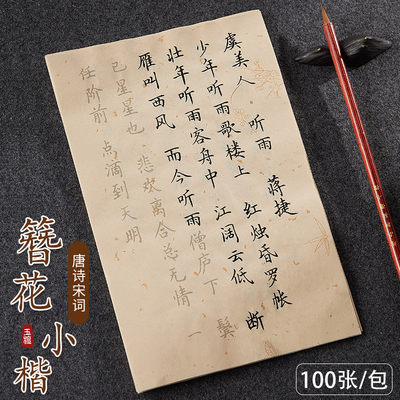 虞美人 听雨 蒋捷
少年听雨歌楼上 红烛昏罗帐
壮年听雨客舟中 江阔云低 断
雁叫西风 而今听雨僧庐下 鬓
已星星也 悲欢离合总无情 一
任阶前 点滴到天明
簪花小楷
唐诗宋词
100张/包